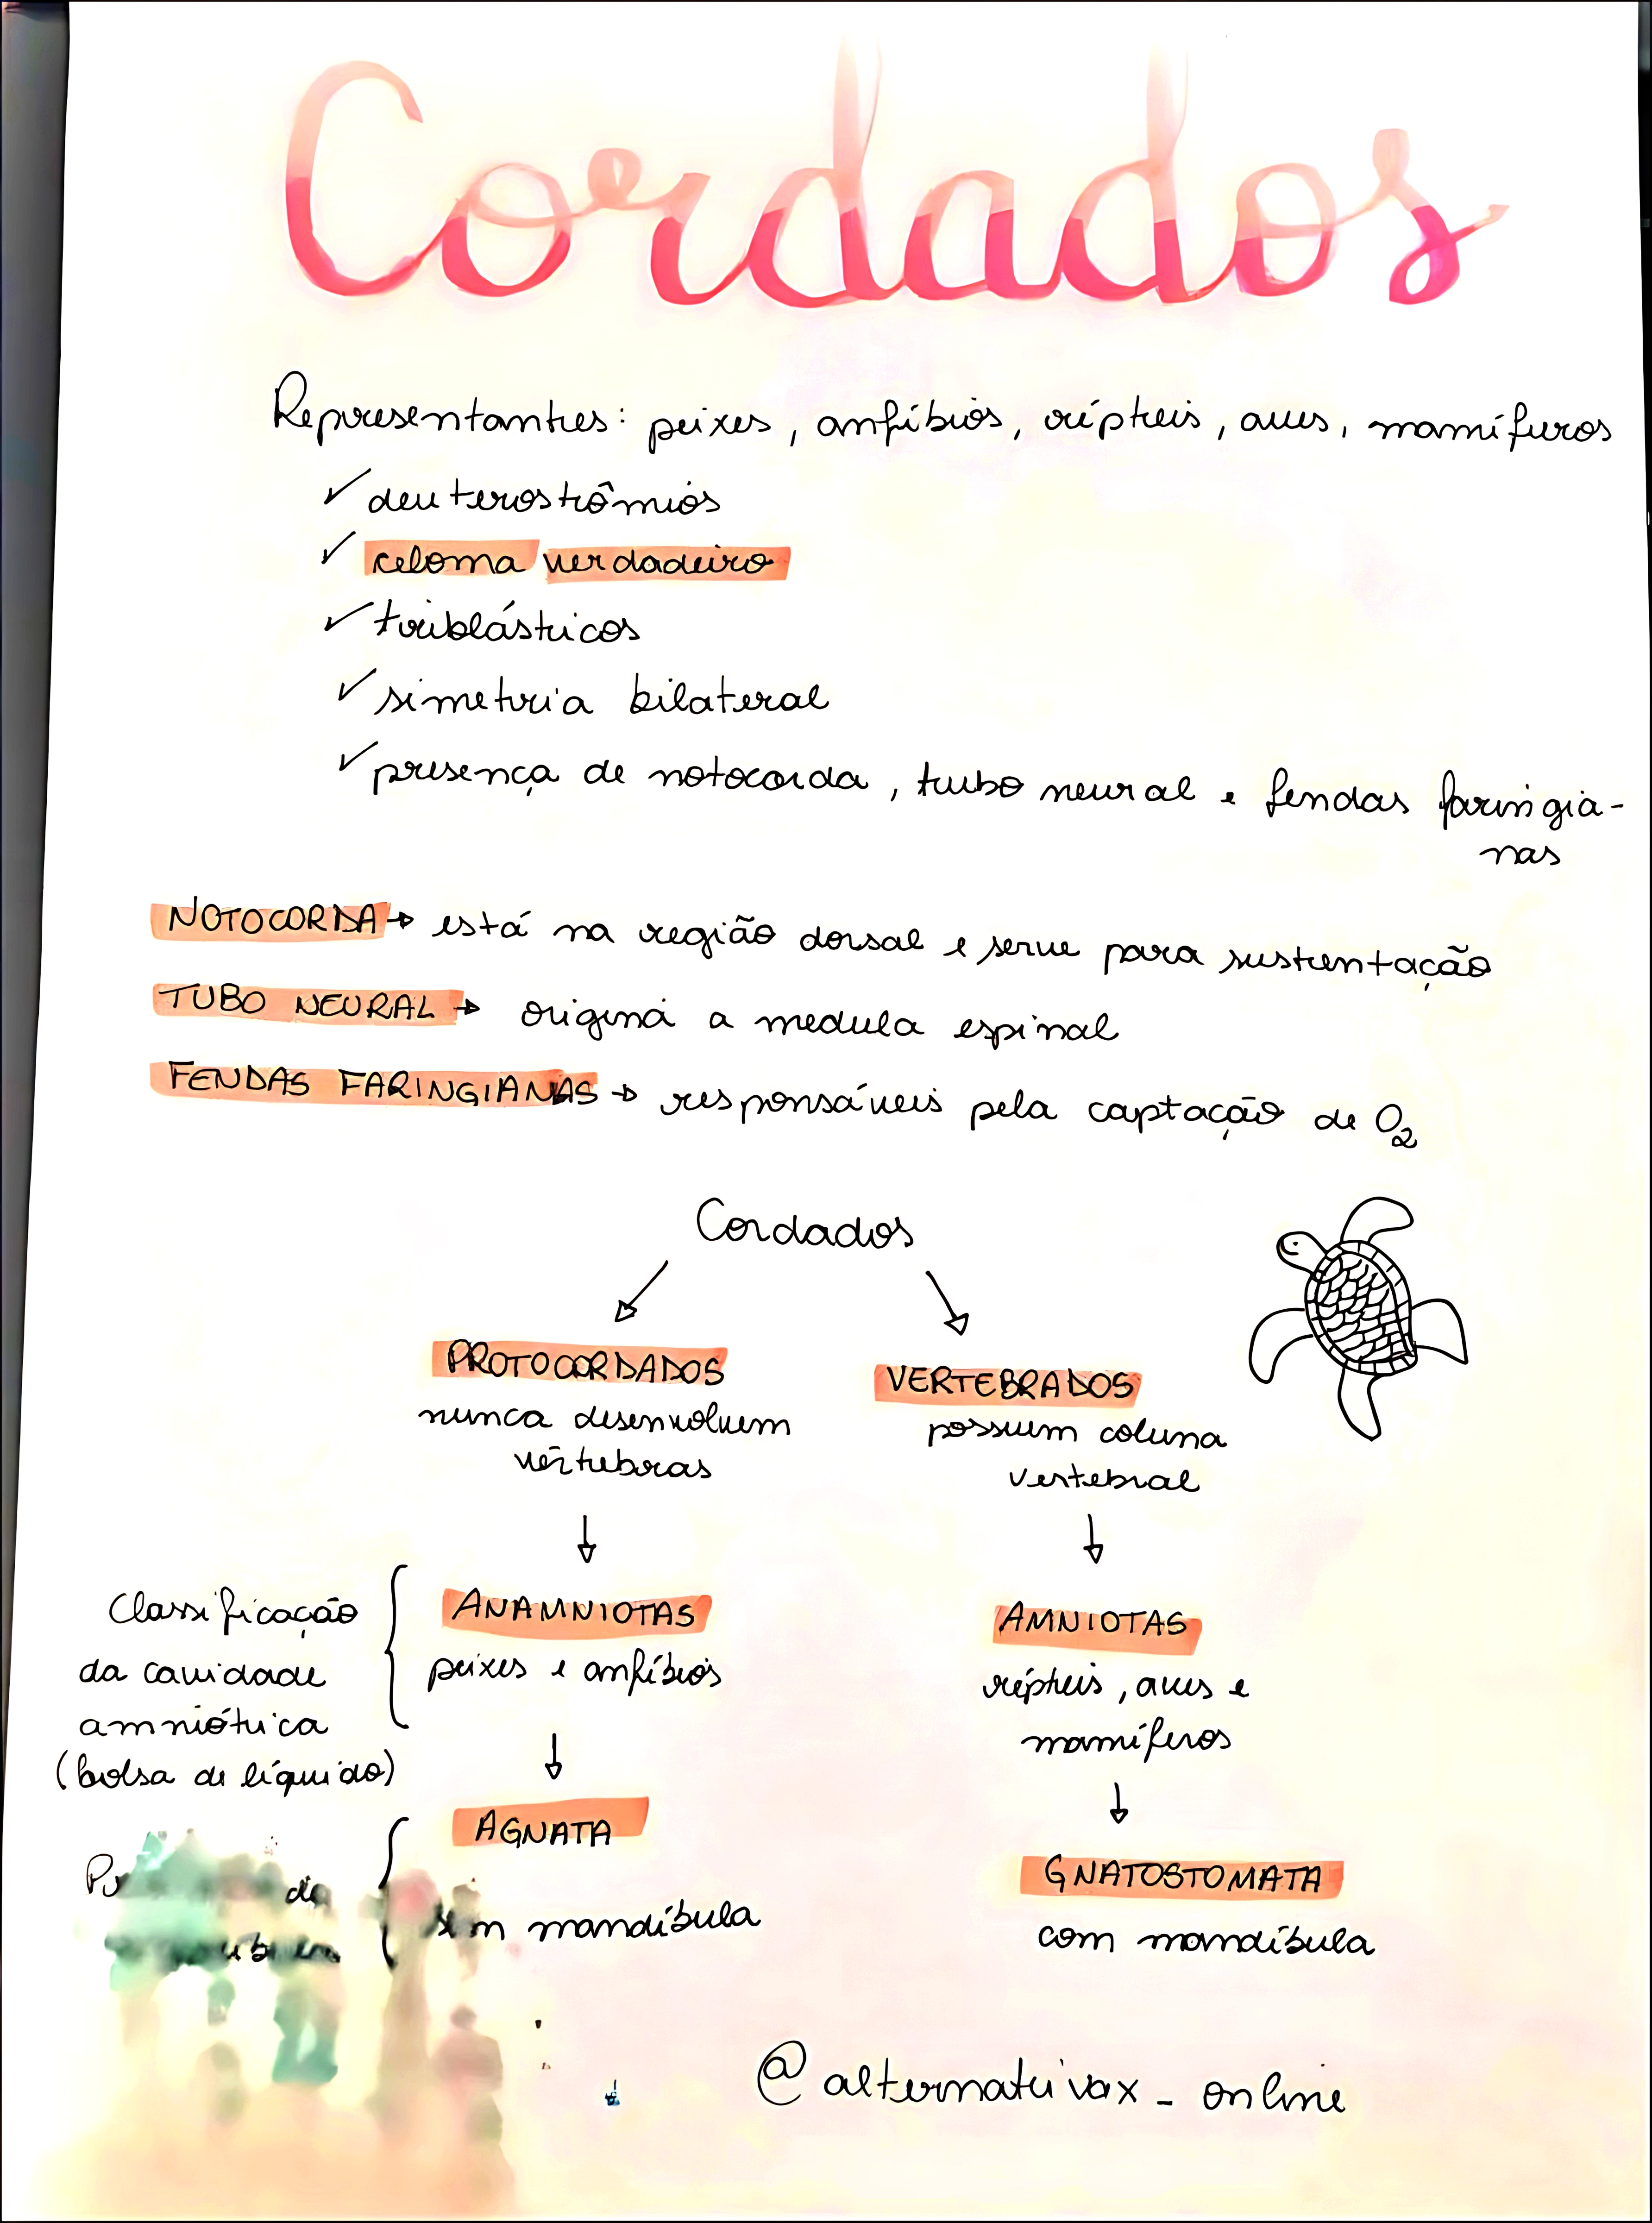 Cordados
Representantes: peixes, anfíbios, répteis, aves, mamíferos
✓ deuterostômios
✓ celoma verdadeiro
✓ triblásticos
✓ simetria bilateral
✓ presença de notocorda, tubo neural e fendas faringia-
nas
NOTOCORDA → está na região dorsal e serve para sustentação
TUBO NEURAL → origina a medula espinal
FENDAS FARINGIANAS → responsáveis pela captação de O₂
Cordados
PROTOCORDADOS
nunca desenvolvem
vértebras
VERTEBRADOS
possuem coluna
vertebral
Classificação
da cavidade
amniótica
(bolsa de líquido)
ANAMNIOTAS
peixes e anfíbios
AMNIOTAS
répteis, aves e
mamíferos
da
AGNATA
sem mandíbula
GNATOSTOMATA
com mandíbula
@alternativax_online